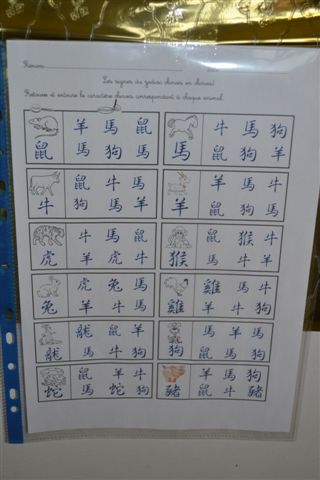 Prénom
Les signes du zodiac chinois en chinois
Retrouve et entoure le caractère chinois correspondant à chaque animal.
羊 馬 鼠 牛 馬 狗
鼠 馬 狗 馬 馬 狗 鼠 羊
鼠 牛 馬 羊 馬 牛
牛 狗 馬 羊 羊 鼠 狗 馬
牛 馬 鼠 鼠 猴 牛
虎 羊 虎 牛 猴 馬 牛 羊
虎 兔 馬 雞 馬 牛
兔 羊 牛 馬 雞 羊 牛 狗
龍 鼠 羊 馬 羊 馬
龍 馬 牛 狗 狗 鼠 馬 狗
鼠 羊 牛 羊 馬 狗
蛇 馬 蛇 狗 豬 鼠 牛 豬